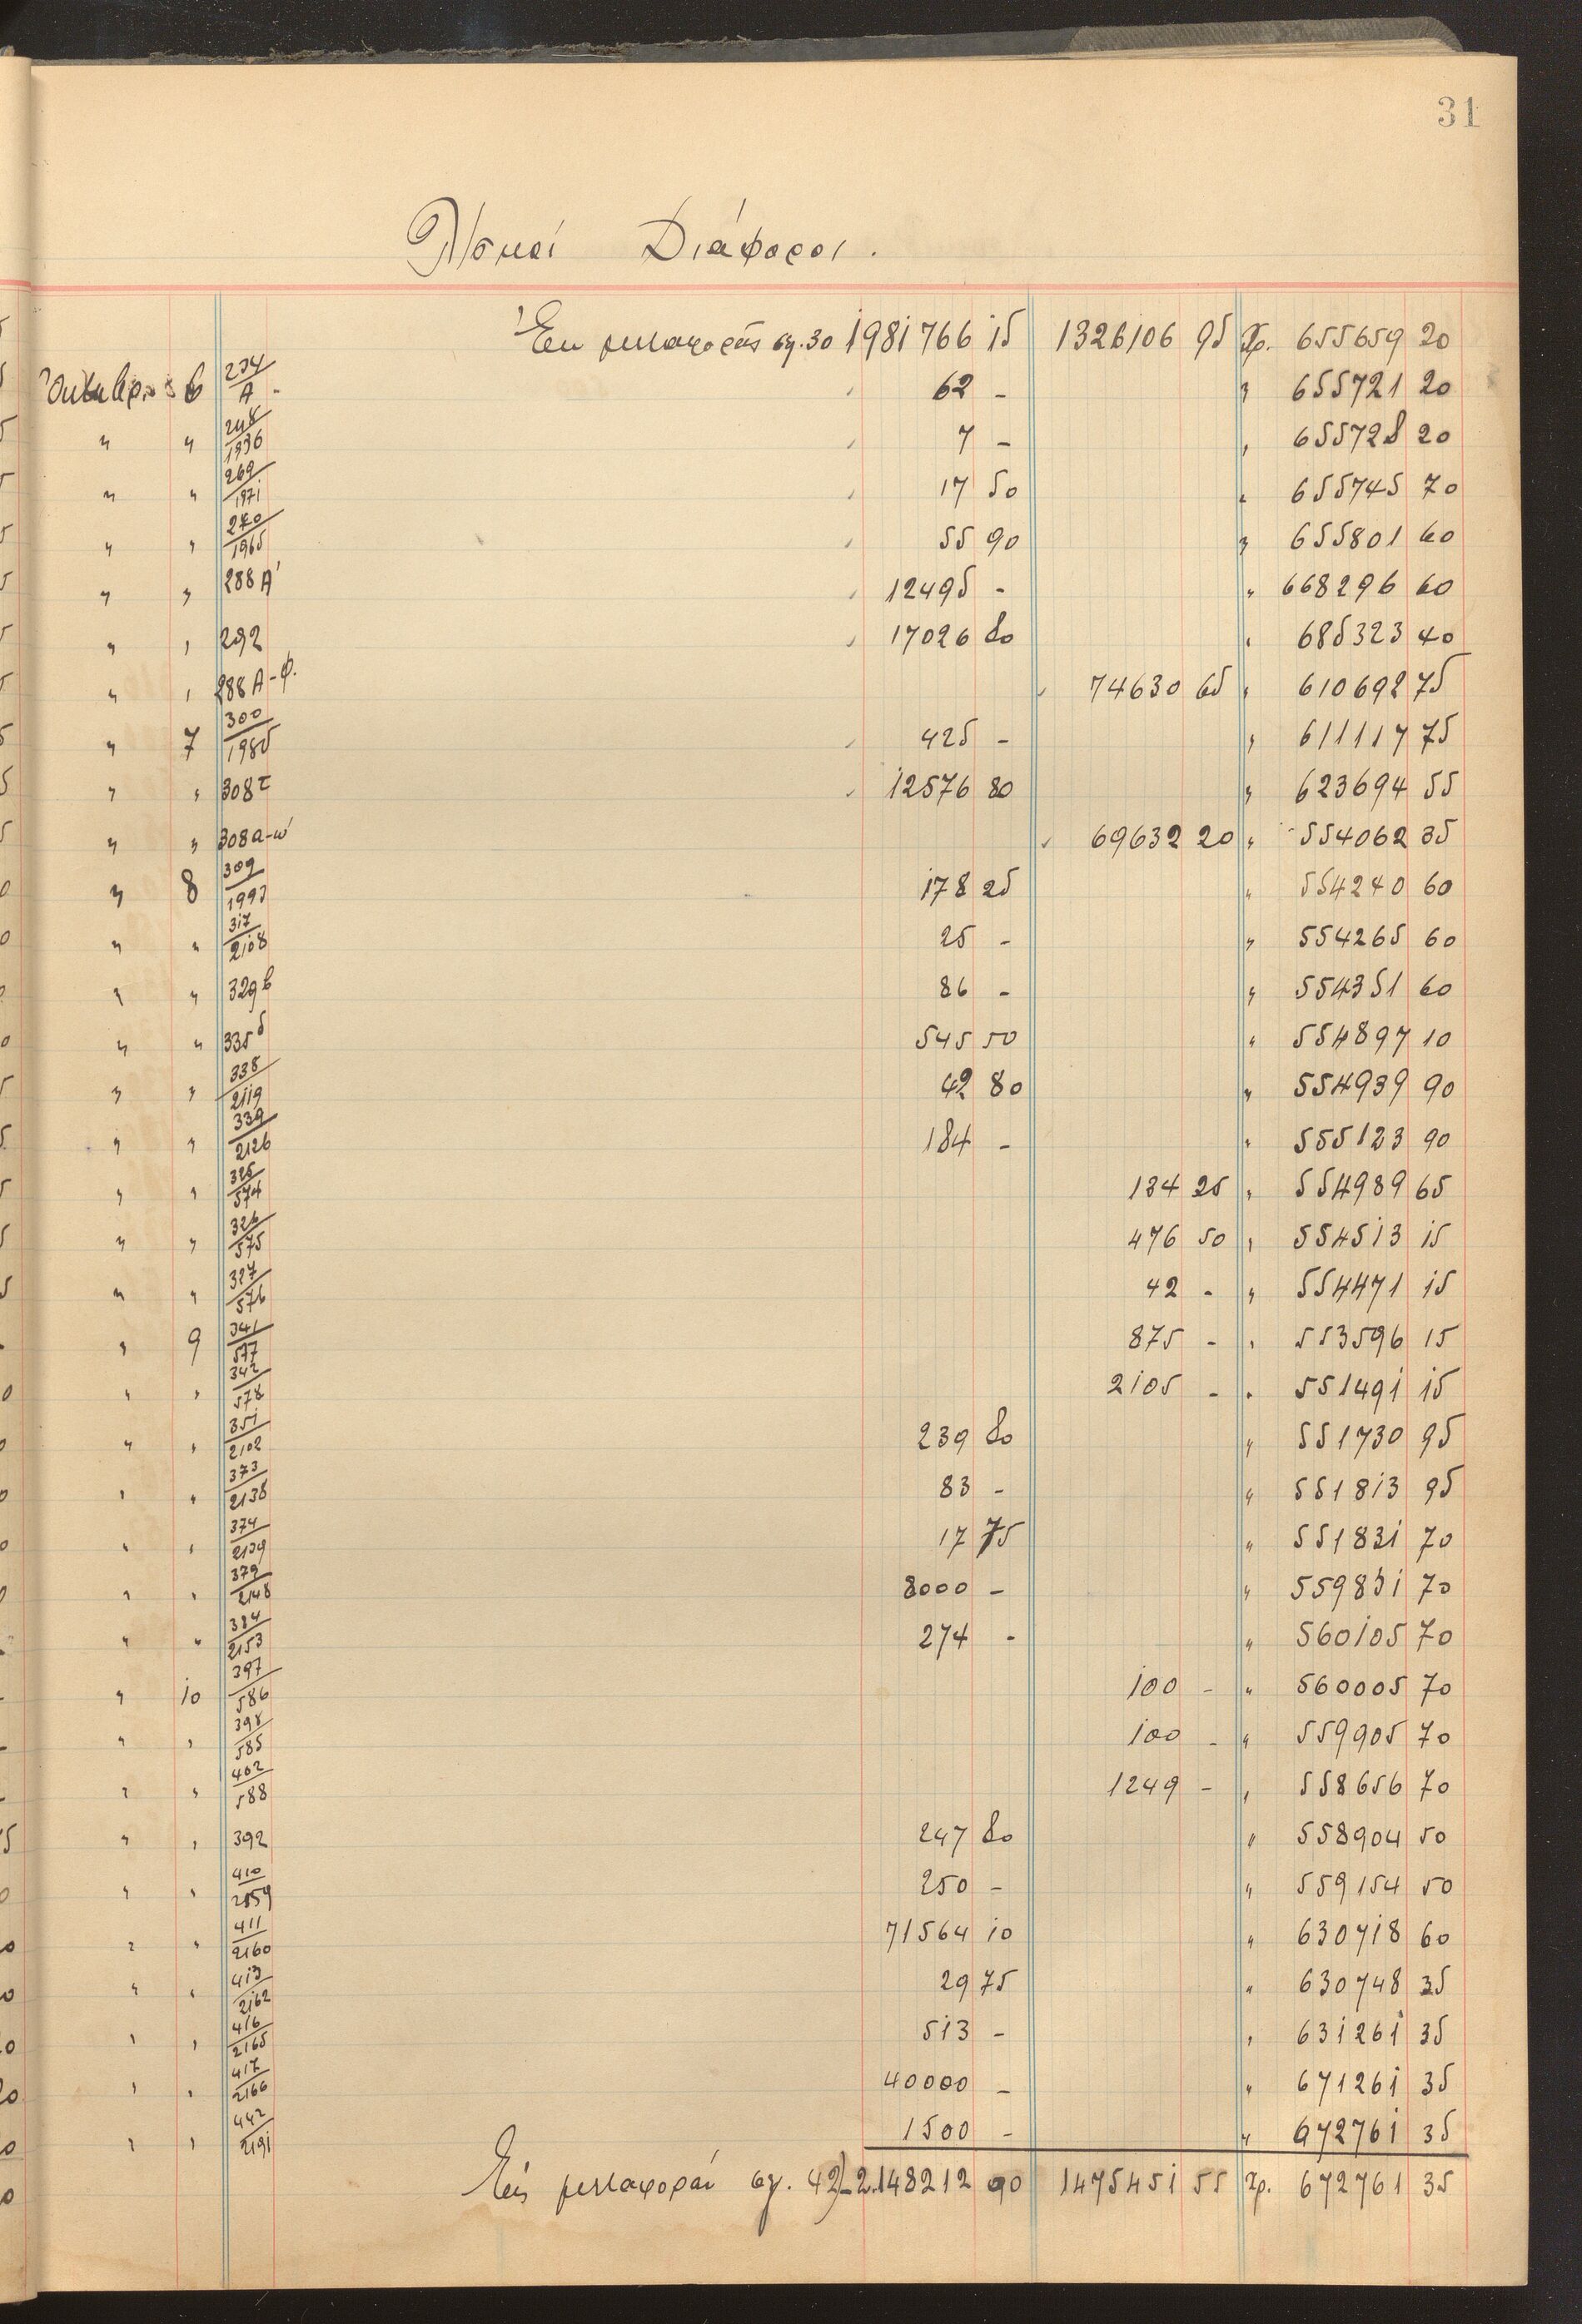 31
Νομοί Διάφοροι.
Ἐκ μεταφορᾶς ση. 30 1981766 15 1326106 95 Χρ. 655659 20
Ὀκτωβρίου 6 234/A - 62 - " 655721 20
" " 248/1936 7 - " 655728 20
" " 269/1971 17 50 " 655745 70
" " 270/1965 55 90 " 655801 60
" " 288 A' 12495 - " 668296 60
" " 292 17026 80 " 685323 40
" " 288 A-φ. 74630 65 " 610692 75
" 7 300/1985 425 - " 611117 75
" " 308 τ 12576 80 " 623694 55
" " 308 α-ω' 69632 20 " 554062 35
" 8 309/1993 178 25 " 554240 60
" " 317/2108 25 - " 554265 60
" " 329 β 86 - " 554351 60
" " 335 δ 545 50 " 554897 10
" " 338/2119 42 80 " 554939 90
" " 339/2126 184 - " 555123 90
" " 325/574 134 25 " 554989 65
" " 326/575 476 50 " 554513 15
" " 327/576 42 - " 554471 15
" 9 341/577 875 - " 553596 15
" " 342/578 2105 - " 551491 15
" " 351/2102 239 80 " 551730 95
" " 373/2138 83 - " 551813 95
" " 374/2139 17 75 " 551831 70
" " 379/2148 8000 - " 559831 70
" " 384/2153 274 - " 560105 70
" 10 397/586 100 - " 560005 70
" " 398/585 100 - " 559905 70
" " 402/588 1249 - " 558656 70
" " 392 247 80 " 558904 50
" " 410/2159 250 - " 559154 50
" " 411/2160 71564 10 " 630718 60
" " 413/2162 29 75 " 630748 35
" " 416/2165 513 - " 631261 35
" " 417/2166 40000 - " 671261 35
" " 442/2191 1500 - " 672761 35
Εἰς μεταφοράν ση. 42)-2.148212 90 1475451 55 Χρ. 672761 35